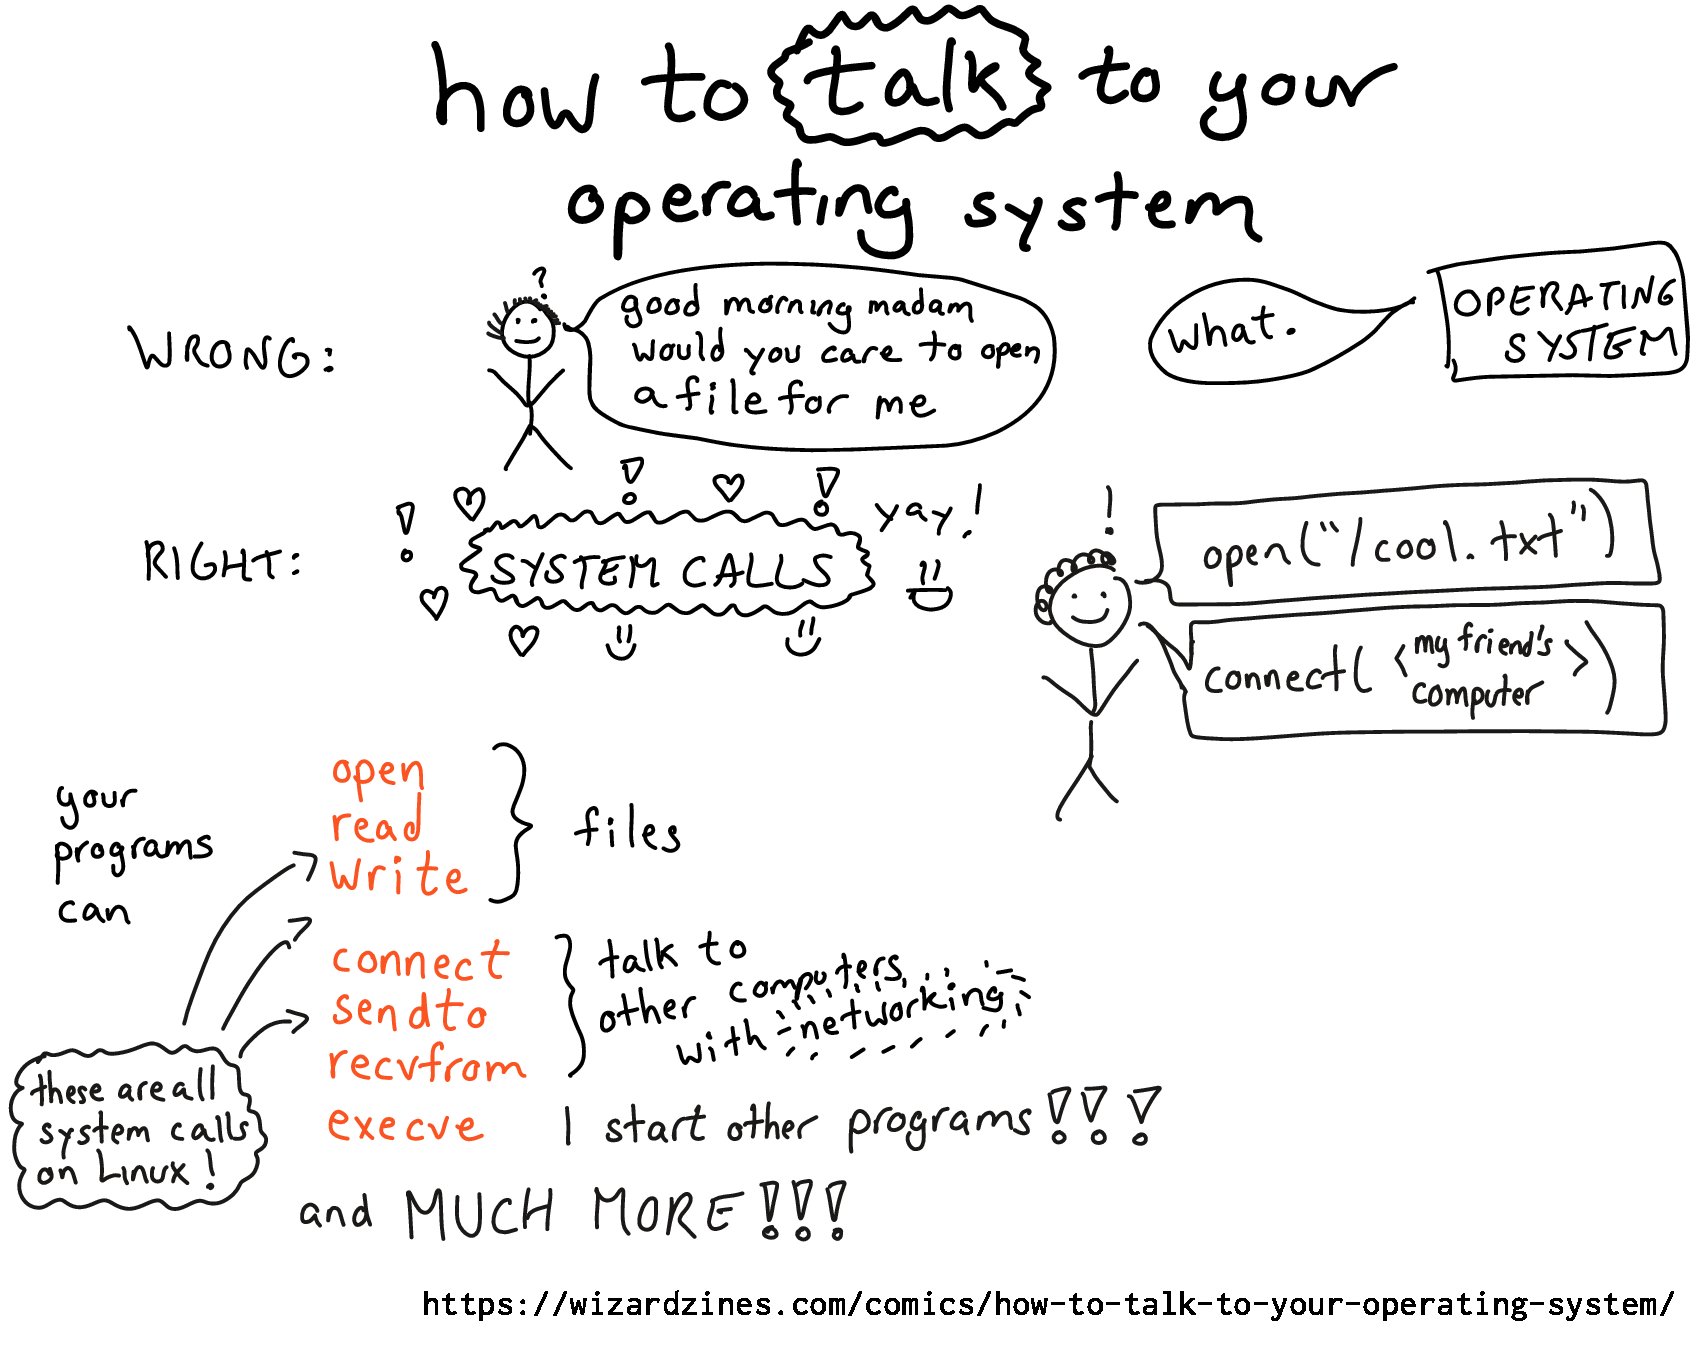 how to talk to your
operating system
WRONG:
?
good morning madam
would you care to open
a file for me
what.
OPERATING
SYSTEM
RIGHT:
! ! !
SYSTEM CALLS
yay!
!
open("/cool.txt")
connect( <my friend's
computer> )
your
programs
can
open
read
write
files
connect
sendto
recvfrom
talk to
other computers
with networking
execve | start other programs!!!
and MUCH MORE!!!
these are all
system calls
on Linux!
https://wizardzines.com/comics/how-to-talk-to-your-operating-system/